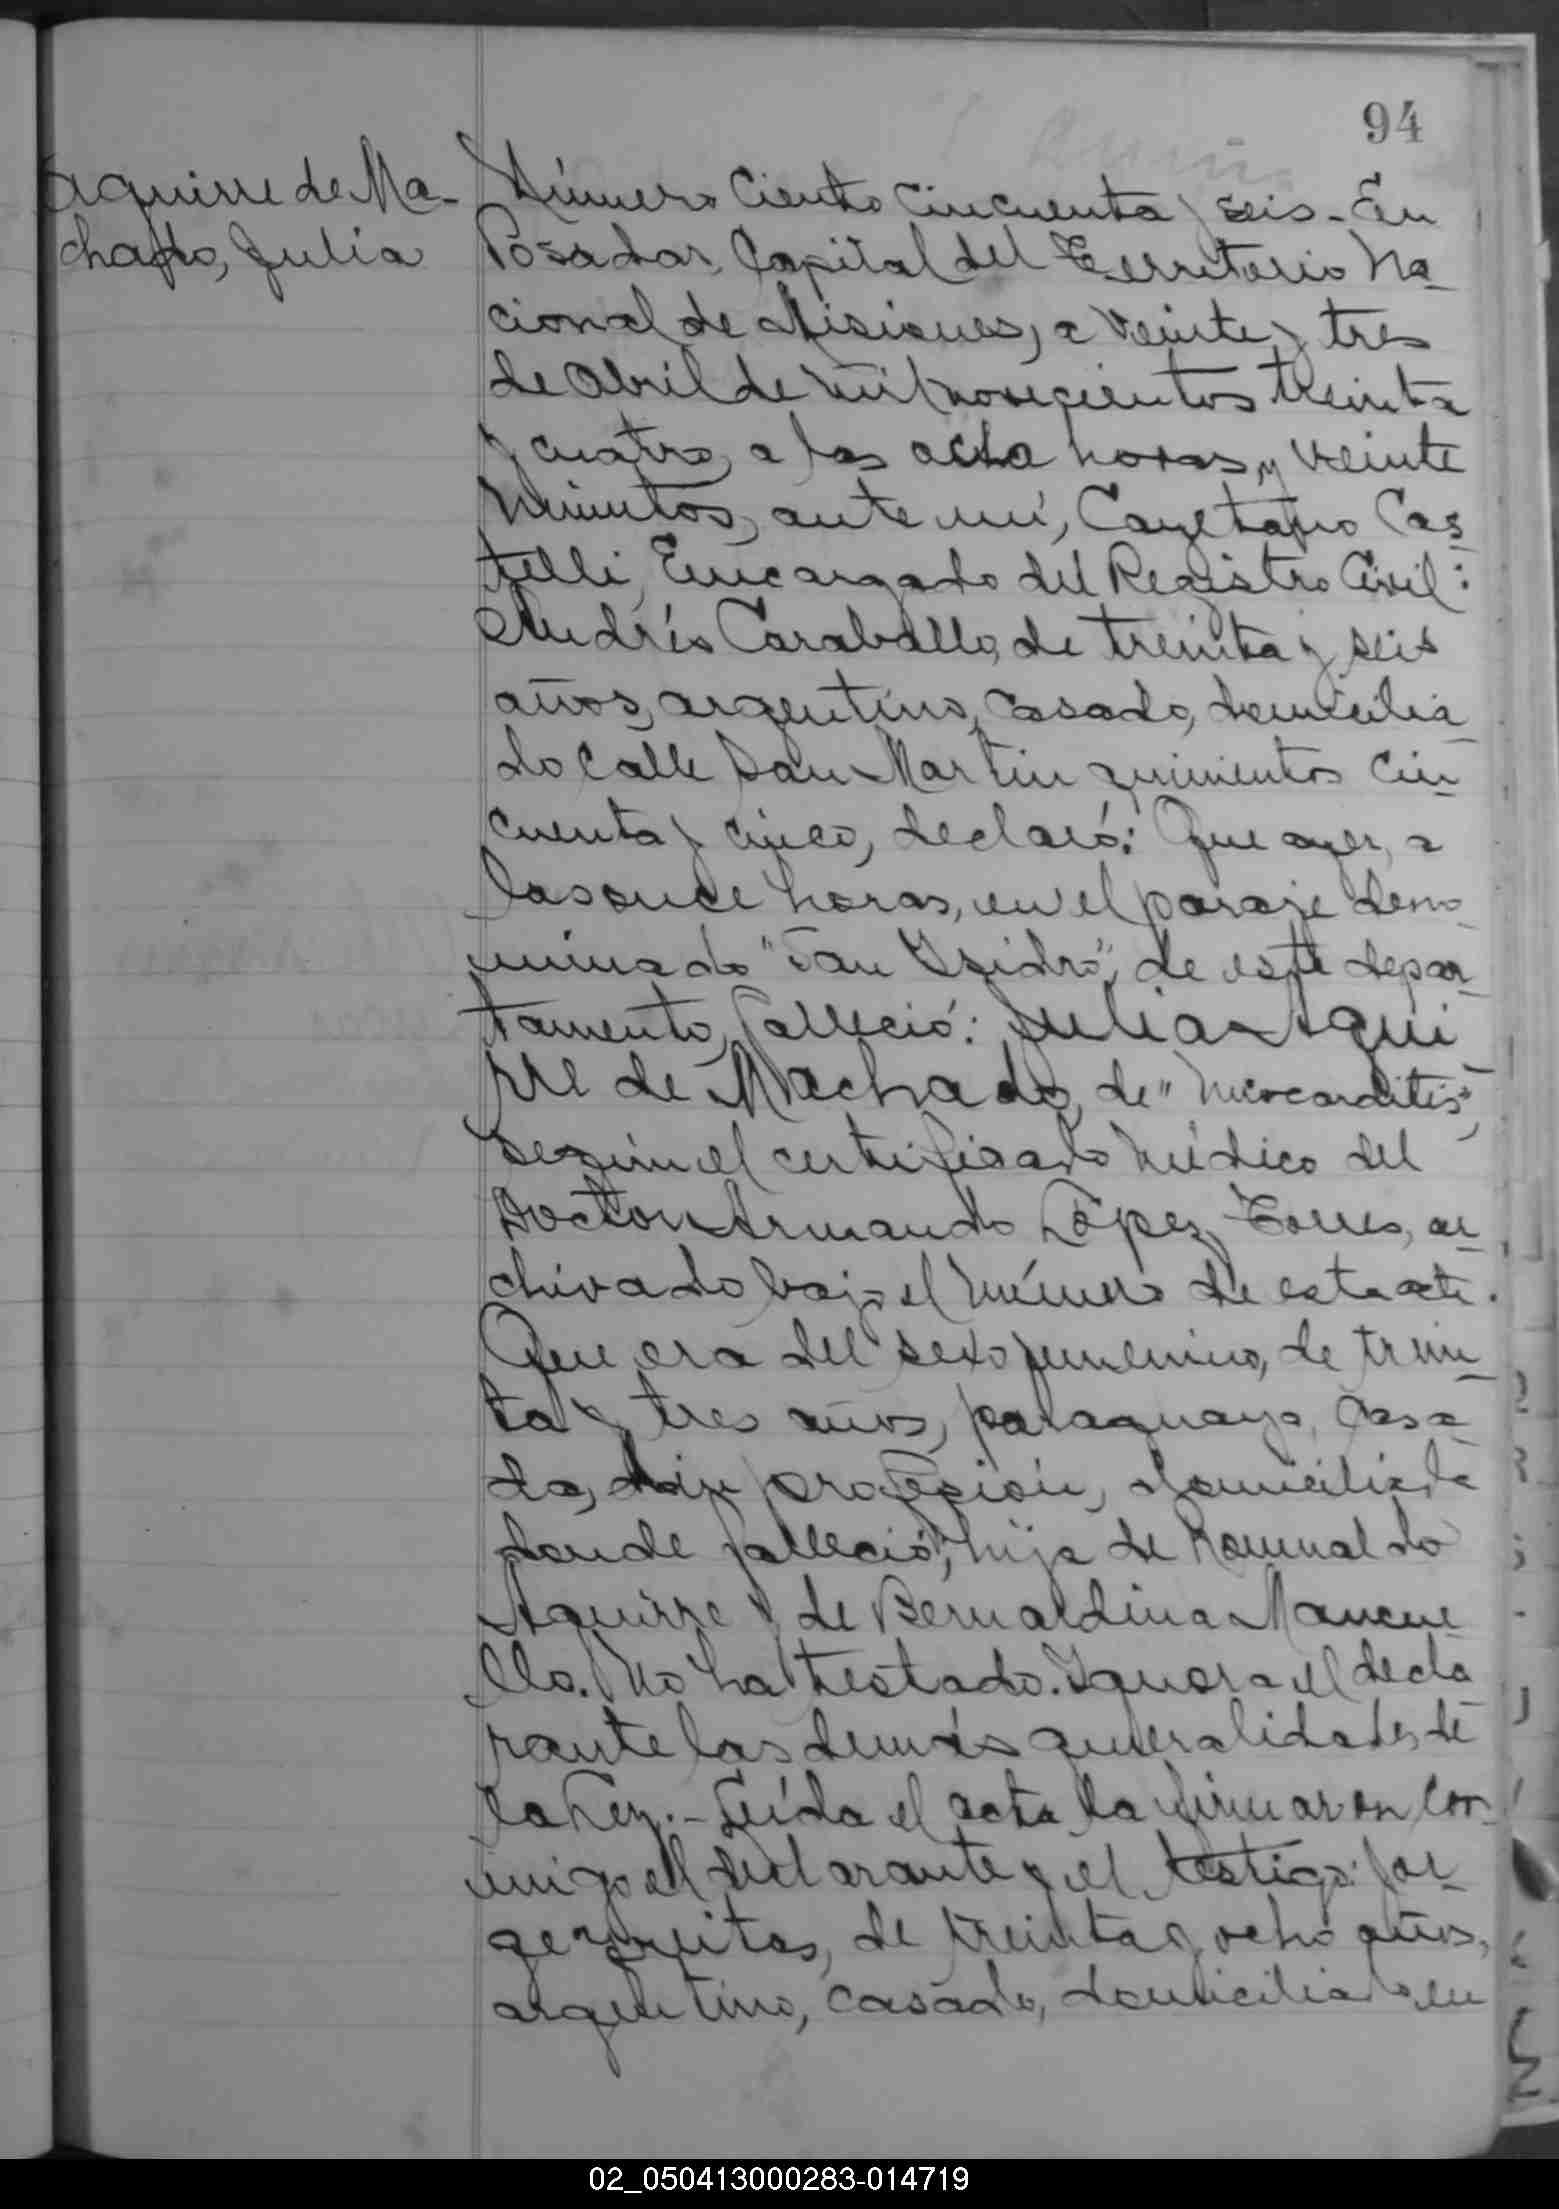 94
Aguirre de Ma-
chado, Julia
Número Ciento Cincuenta y seis - En
Posadas, Capital del Territorio Na-
cional de Misiones, a veinte y tres
de Abril de mil novecientos treinta
y cuatro, a las ocho horas, y veinte
minutos, ante mí, Cayetano Cas-
telli, Encargado del Registro Civil:
Andrés Caraballo, de treinta y seis
años, argentino, casado, domicilia-
do calle San Martin quinientos cin-
cuenta y cinco, declaró: Que ayer, a
las once horas, en el paraje deno-
minado "San Isidro", de este depar-
tamento, falleció: Julia Agui-
rre de Machado, de "miocarditis",
según el certificado médico del
Doctor Armando López Torres, ar-
chivado bajo el número de esta acta.
Que era del sexo femenino, de trein-
ta y tres años, paraguaya, casa-
da, sin profesión, domiciliada
donde falleció, hija de Romualdo
Aguirre y de Bernardina Mancue-
llo. No ha testado. Ignora el decla-
rante las demás generalidades de
la Ley. - Leída el acta la firmaron con-
migo el declarante y el testigo: Jor-
ge de treinta y ocho años,
argentino, casado, domiciliado en
02_050413000283-014719